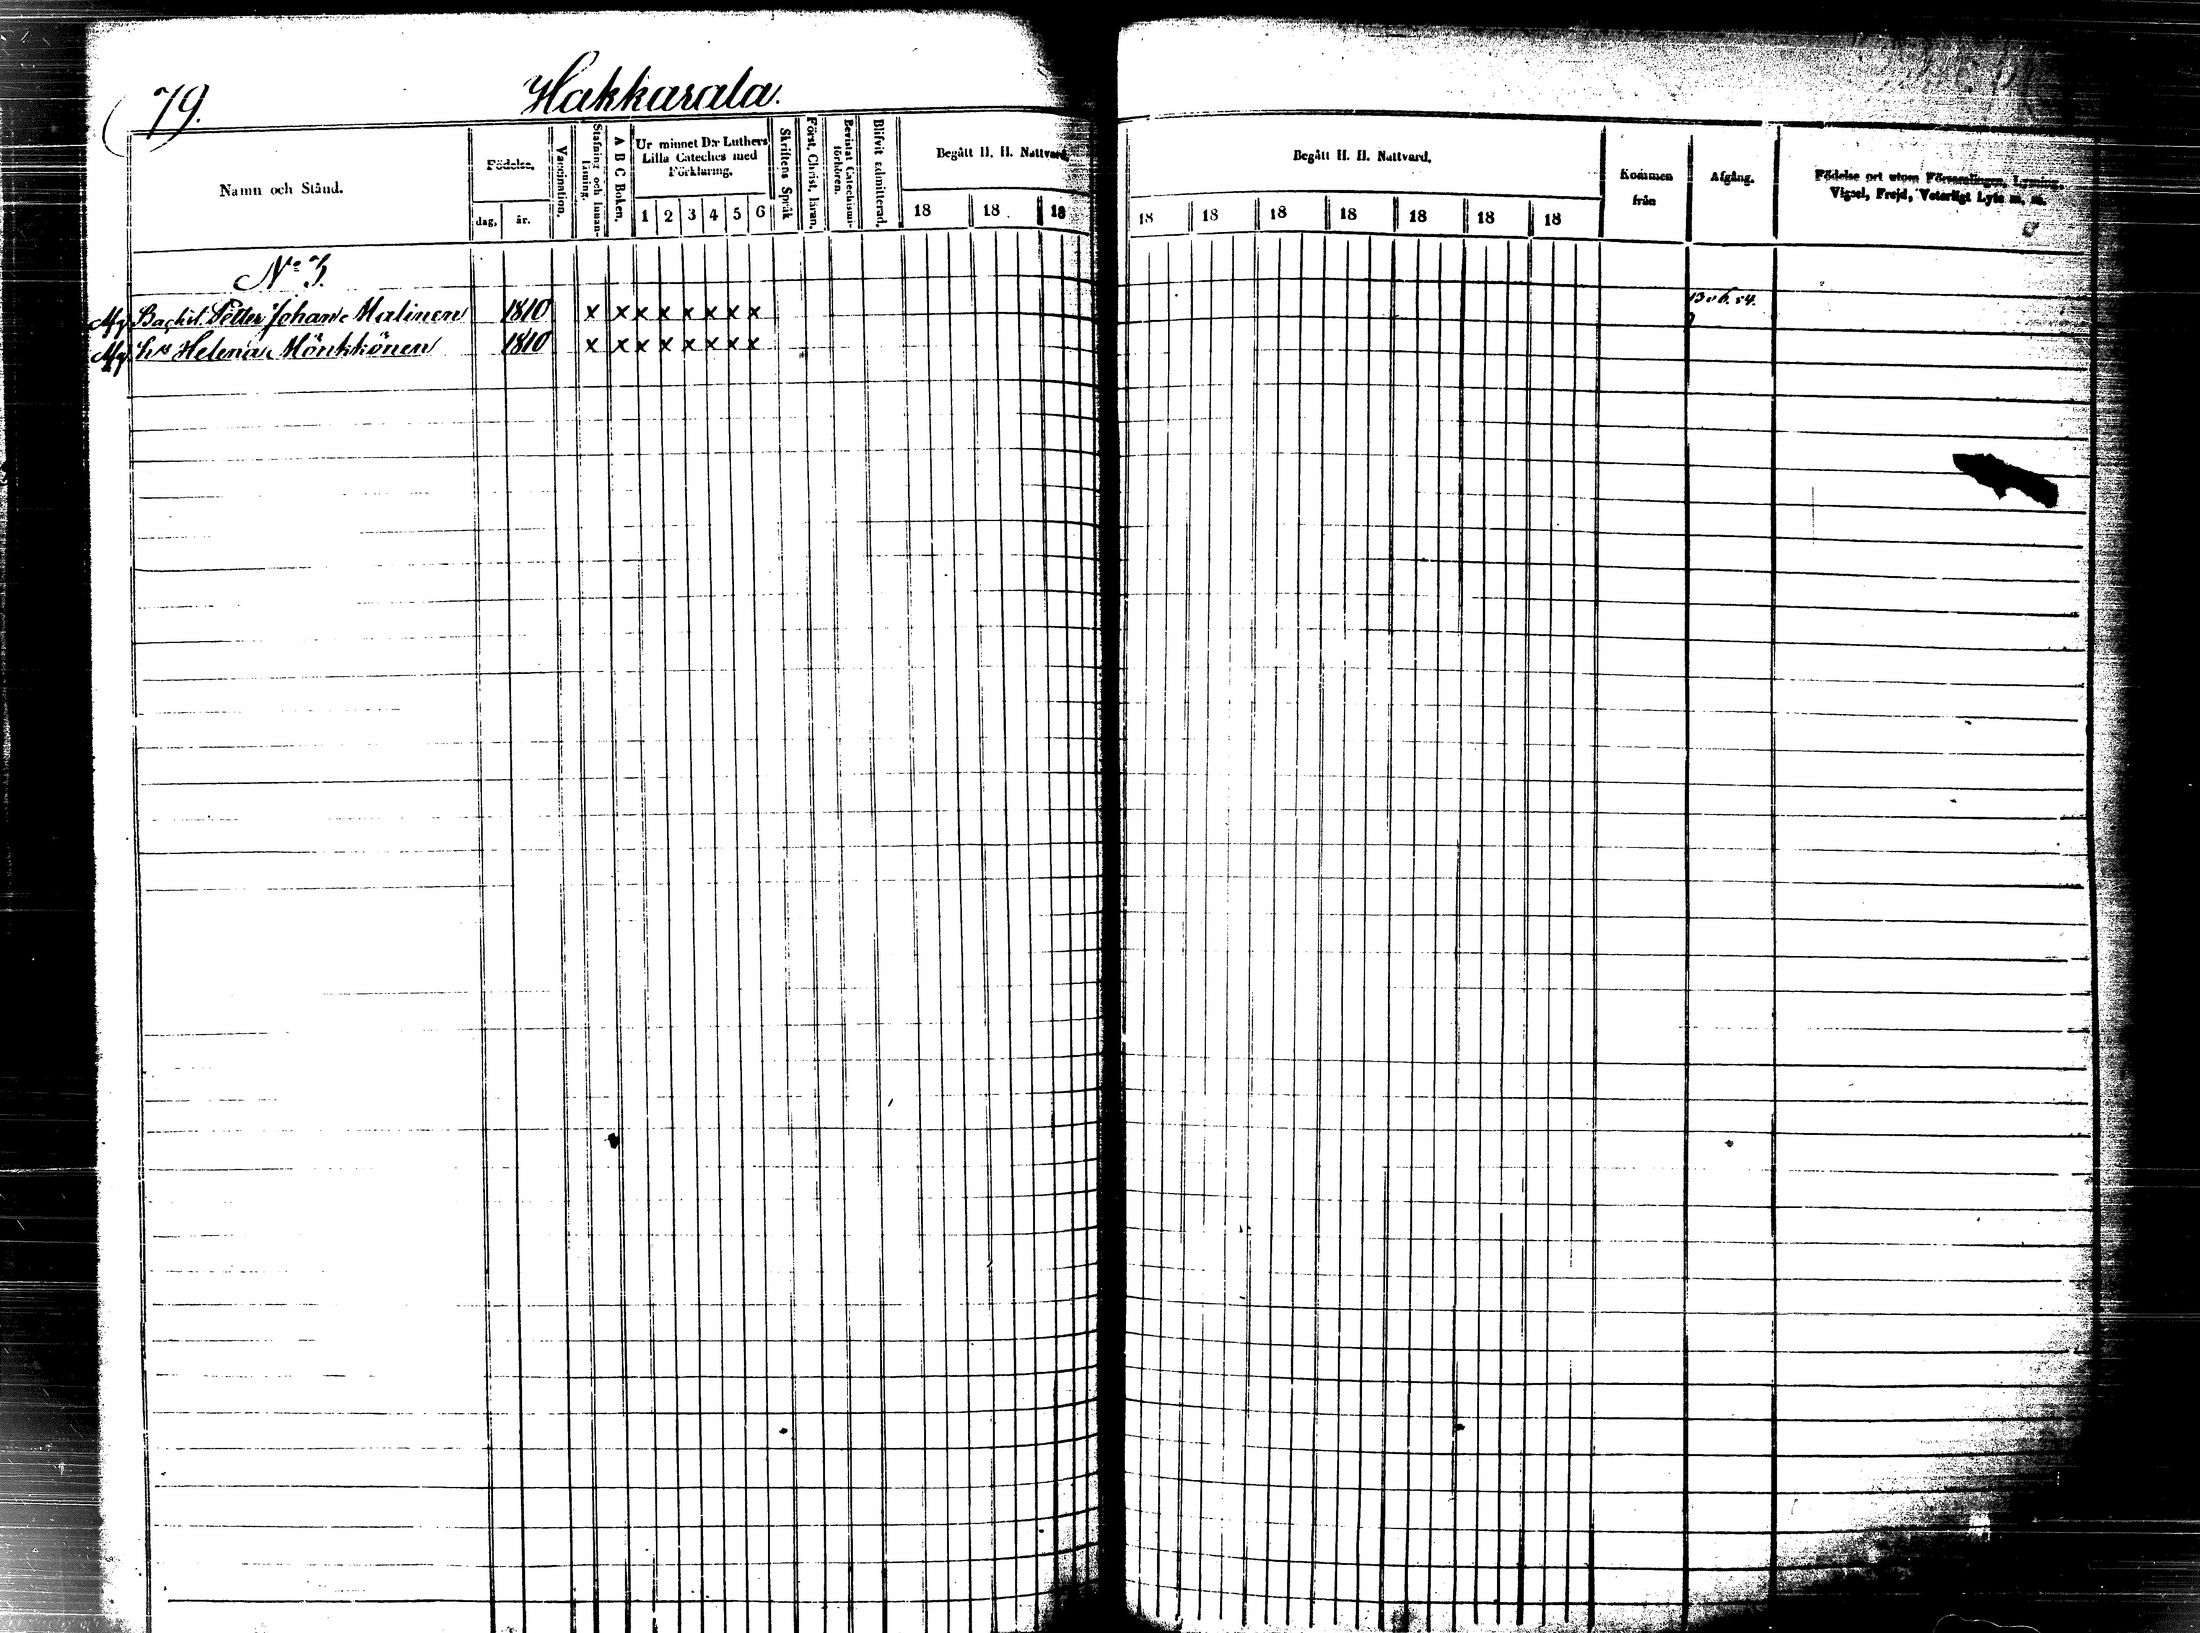 79.
Hakkarala.
Namn och Stånd.
Födelse.
dag,
år.
Vaccination.
Stafning och Innan-
läsning.
A B C Boken.
Ur minnet D:r Luthers
Lilla Cateches med
Förklaring.
1 2 3 4 5 6
Skriftens Språk
Först. Christ. läran.
Bevistat Catechismi-
förhören.
Blifvit admitterad.
Begått H. H. Nattvard.
18 18 18
Begått H. H. Nattvard.
18 18 18 18 18 18 18
Kommen
från
Afgång.
Födelse ort utom Församlingen, Lysning,
Vigsel, Frejd, Veterligt Lyte m. m.
No 3.
Afg Petter Johan Malinen 1810 x x x x x x x x
Afg Hs Helena Mönkkönen 1810 x x x x x x x x